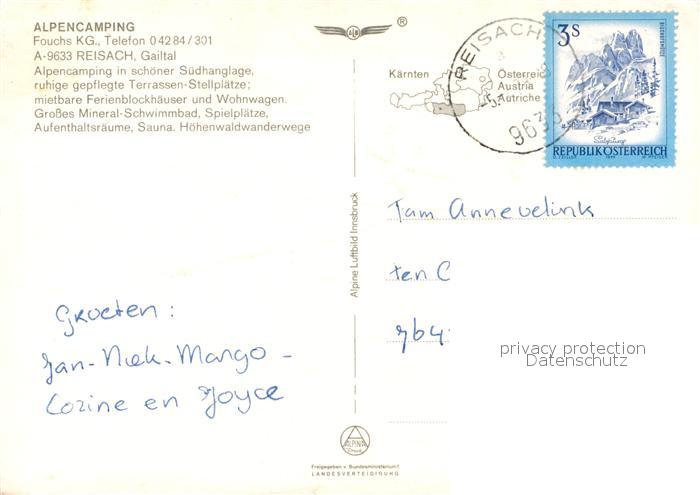 ALPENCAMPING
Fouchs KG., Telefon 0 42 84 / 301
A-9633 REISACH, Gailtal
Alpencamping in schöner Südhanglage,
ruhige gepflegte Terrassen-Stellplätze;
mietbare Ferienblockhäuser und Wohnwagen.
Großes Mineral-Schwimmbad, Spielplätze,
Aufenthaltsräume, Sauna. Höhenwaldwanderwege
®
REISACH
9633
Kärnten
Österreich
Austria
Autriche
3S
REPUBLIK ÖSTERREICH
Alpine Luftbild Innsbruck
Fam Annevelink
ten C
764
privacy protection
Datenschutz
Groeten:
Jan-Niek-Margo-
Corine en Joyce
ALPINA
Freigegeben v. Bundesministerium f.
LANDESVERTEIDIGUNG